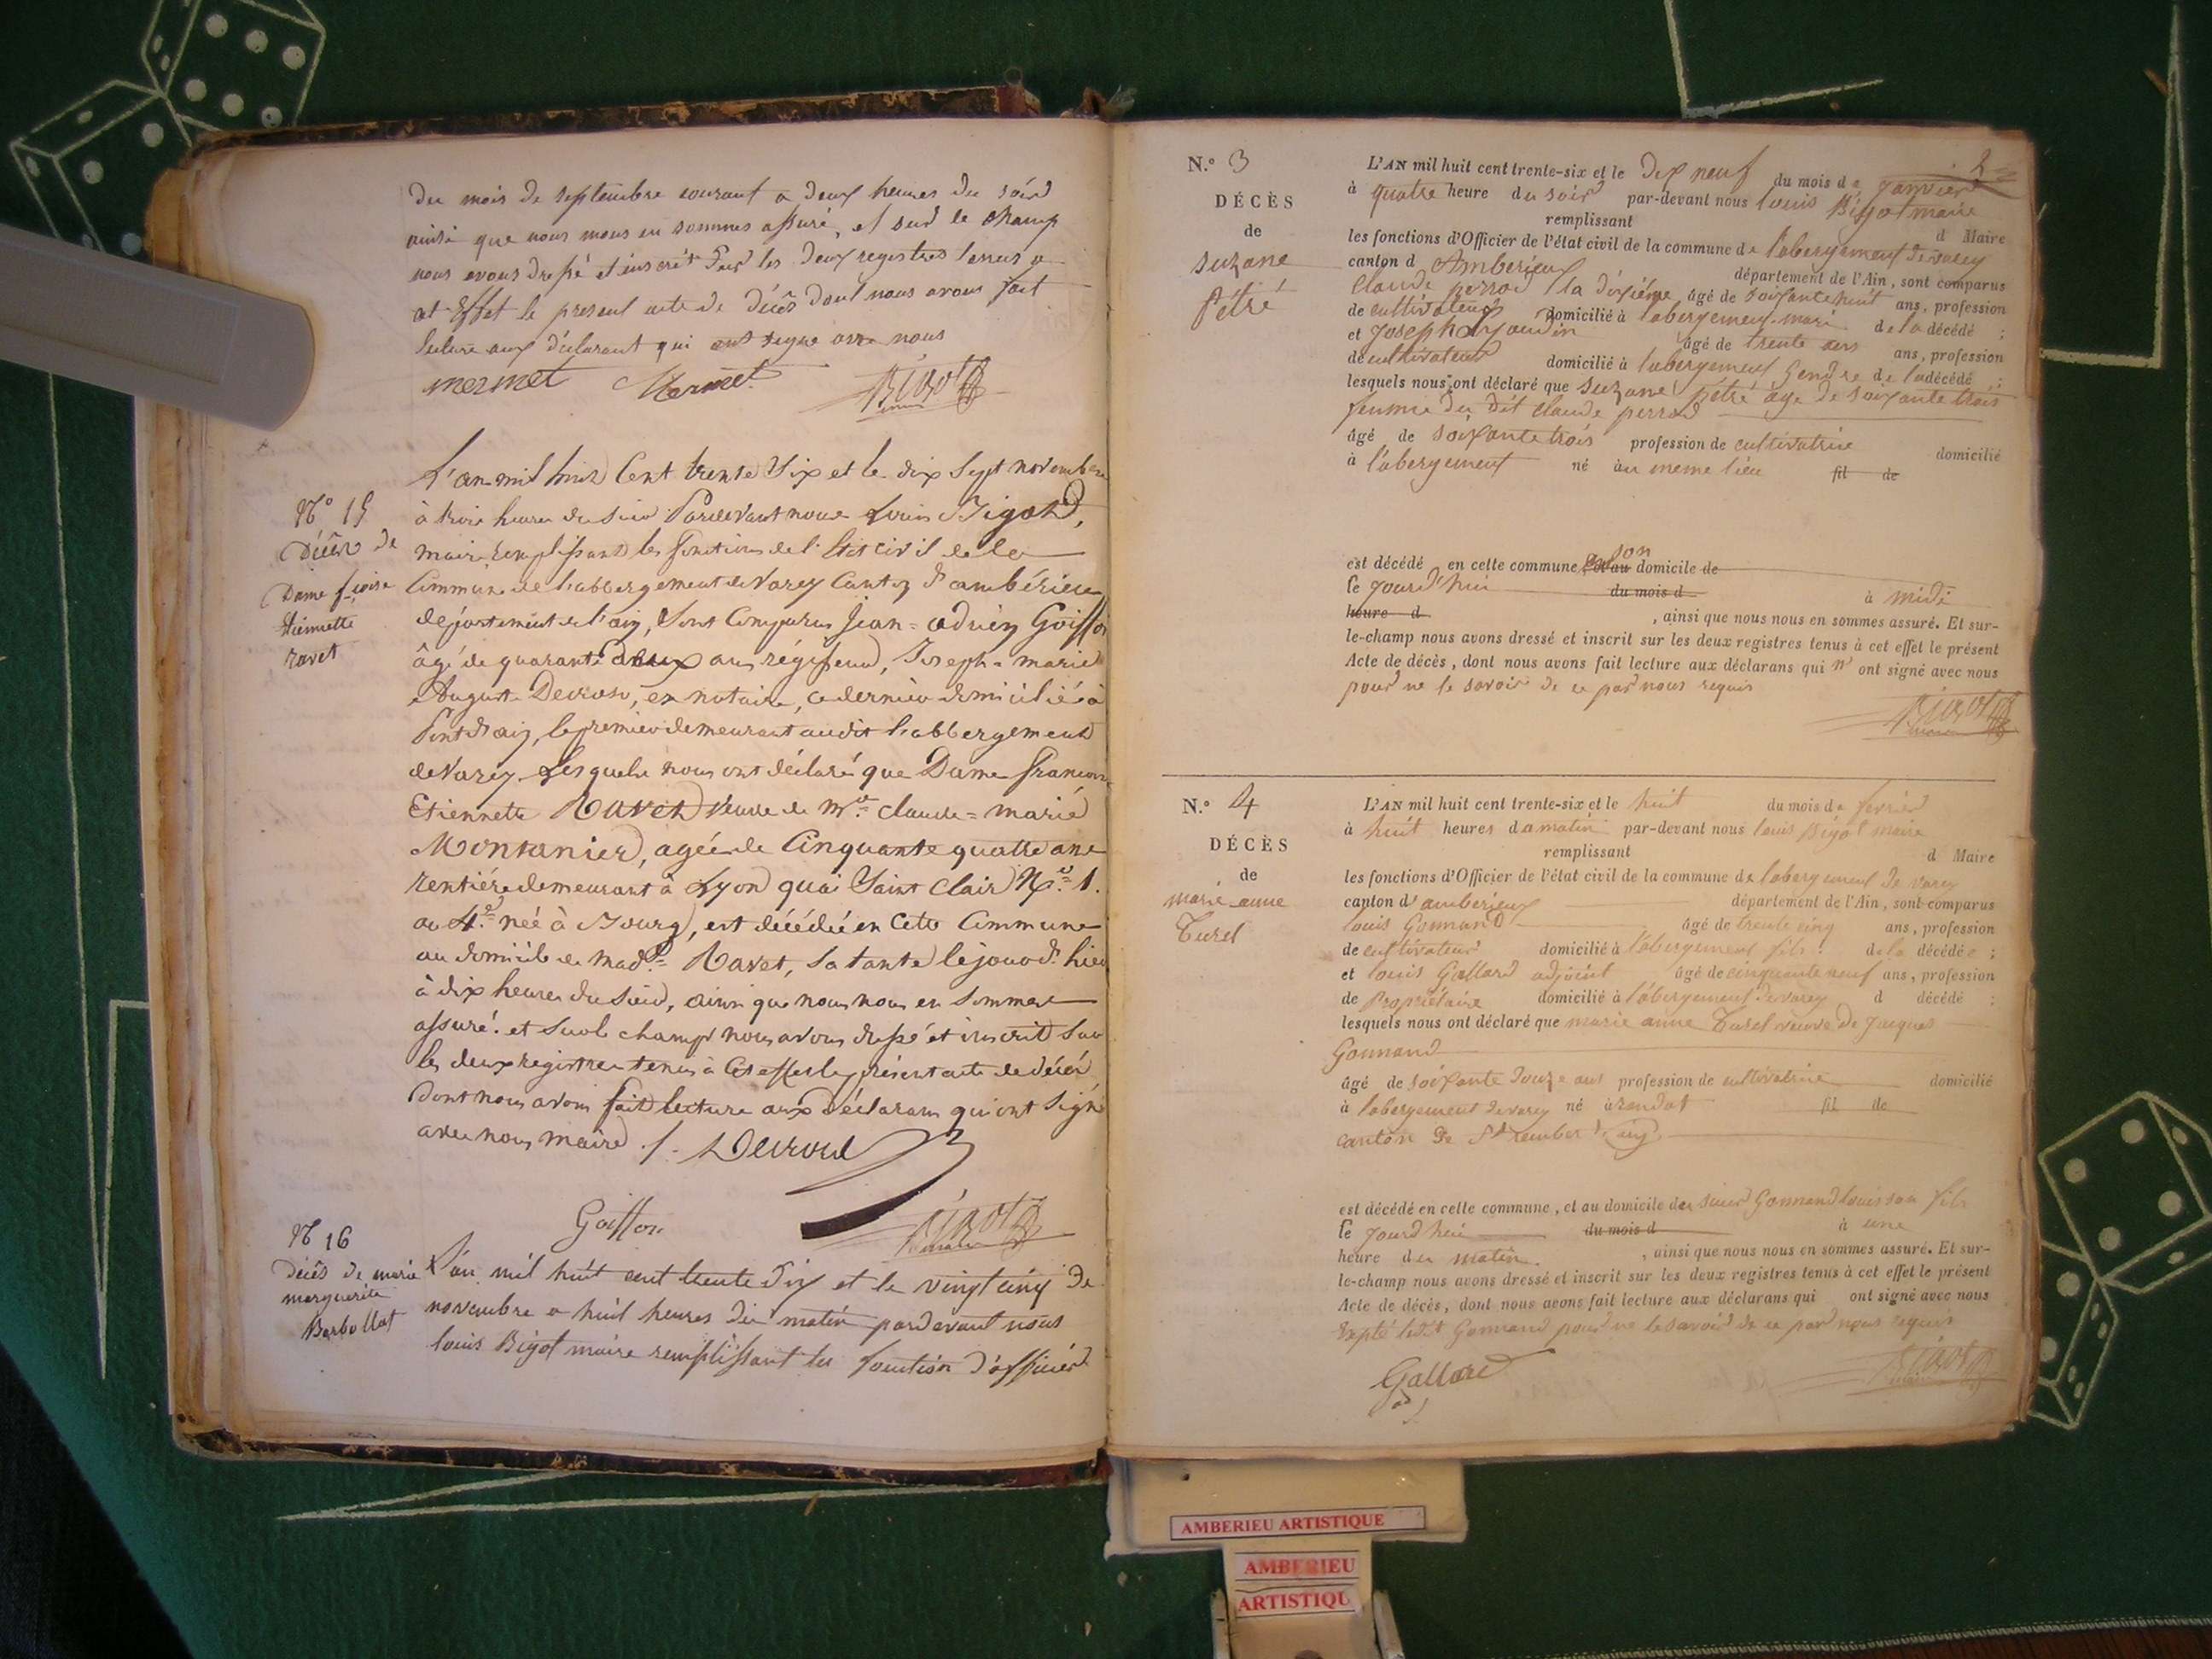 du mois de septembre courant a deux heures du soir
ainsi que nous nous en sommes assuré, et sur le champ
nous avons dressé et inscrit sur les deux registres tenus a
cet effet le present acte de décès dont nous avons fait
lecture aux déclarant qui ont signe avec nous
mermet Mermet Bigot
N° 15
Décès de
Dame f.çoise
Etiennette
ravet
L'an mil huit Cent trente Six et le dix Sept novembre
à trois heures du Soir Pardevant nous Louis Bigot,
maire, remplissant les fonctions de l'état civil de la
Commune de l'abbergement de Varey Canton d'ambérieu
département de l'ain, Sont Comparus Jean=adrien Goiffon
âgé de quarante deux ans régisseur, Joseph=marie
Auguste Devroud, ex notaire, ce dernier domicilié à
Pont d'ain, le premier demeurant audit l'abbergement
de Varey. Lesquels nous ont déclaré que Dame Francoise
Etiennette Ravet veuve de Mr. claude=marie
Montanier, agée de Cinquante quatre ans
rentière demeurant à Lyon quai Saint Clair No. 1.
au 4.e née à Bourg, est décédée en Cette Commune
au domicile de Mad.e Ravet, Sa tante le jour d'hier
à dix heures du Soir, ainsi que nous nous en Sommes
assuré. et Sur le champ nous avons dressé et inscrit Sur
les deux registres tenus à Cet effet le présent acte de décès
Dont nous avons fait lecture aux Déclarans qui ont Signé
avec nous maire ./. Devroud
Goiffon Bigot
N 16
Décès de marie
marguerite
Barbollat
L'an mil huit cent trente Six et le vingt cinq de
novembre a huit heures du matin pardevant nous
louis Bigot maire remplissant les fonction d'officier
2
N.° 3
DÉCÈS
de
suzane
Pétré
L'AN mil huit cent trente-six et le Dix neuf du mois de janvier
à quatre heure du soir par-devant nous louis Bigot maire
remplissant d Maire
les fonctions d'Officier de l'état civil de la commune de l'abergement de varey
canton d Amberieux département de l'Ain, sont comparus
Claude perrod la dixiéme âgé de soixante huit ans, profession
de cultivateur domicilié à l'abergement mari de la décédé ;
et Joseph âgé de trente ans ans, profession
de cultivateur domicilié à l'abergement Gendre de la décédé ;
lesquels nous ont déclaré que suzane pétré âge de soixante trois
femme du dit claude perrod
âgé de soixante trois profession de cultivatrice domicilié
à l'abergement né au meme lieu fil de
est décédé en cette commune et au son domicile de
le jourd'hui du mois d à midi
heure d , ainsi que nous nous en sommes assuré. Et sur-
le-champ nous avons dressé et inscrit sur les deux registres tenus à cet effet le présent
Acte de décès, dont nous avons fait lecture aux déclarans qui n' ont signé avec nous
pour ne le savoir de ce par nous requis
Bigot
N.° 4
DÉCÈS
de
marie anne
Turel
L'AN mil huit cent trente-six et le huit du mois de fevrier
à huit heures du matin par-devant nous louis Bigot maire
remplissant d Maire
les fonctions d'Officier de l'état civil de la commune de l'abergement de varey
canton d' amberieux département de l'Ain, sont comparus
louis Gonnand âgé de trente cinq ans, profession
de cultivateur domicilié à l'abergement fils de la décédée ;
et louis Gallard adjoint âgé de cinquante neuf ans, profession
de Propriétaire domicilié à l'abergement de varey d décédé ;
lesquels nous ont déclaré que marie anne Turel veuve de Jacques
Gonnand
âgé de soixante douze ans profession de cultivatrice domicilié
à l'abergement de varey né à rendat fil de
canton de St rembert (ain)
est décédé en cette commune, et au domicile du sieur Gonnand louis son fils
le jourd'hui du mois d à une
heure du matin , ainsi que nous nous en sommes assuré. Et sur-
le-champ nous avons dressé et inscrit sur les deux registres tenus à cet effet le présent
Acte de décès, dont nous avons fait lecture aux déclarans qui ont signé avec nous
expté ledit Gonnand pour ne le savoir de ce par nous requis
Gallard Bigot
adj
AMBERIEU ARTISTIQUE
AMBERIEU
ARTISTIQU